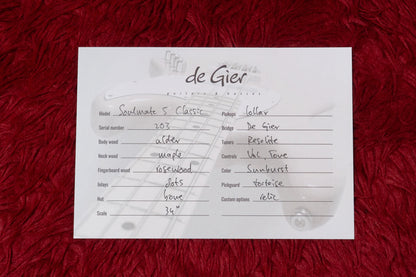 de Gier
guitars & basses
Model Soulmate 5 Classic
Serial number 203
Body wood alder
Neck wood maple
Fingerboard wood rosewood
Inlays dots
Nut bone
Scale 34"
Pickups lollar
Bridge De Gier
Tuners Resolite
Controls Vol, Tone
Color Sunburst
Pickguard tortoise
Custom options relic